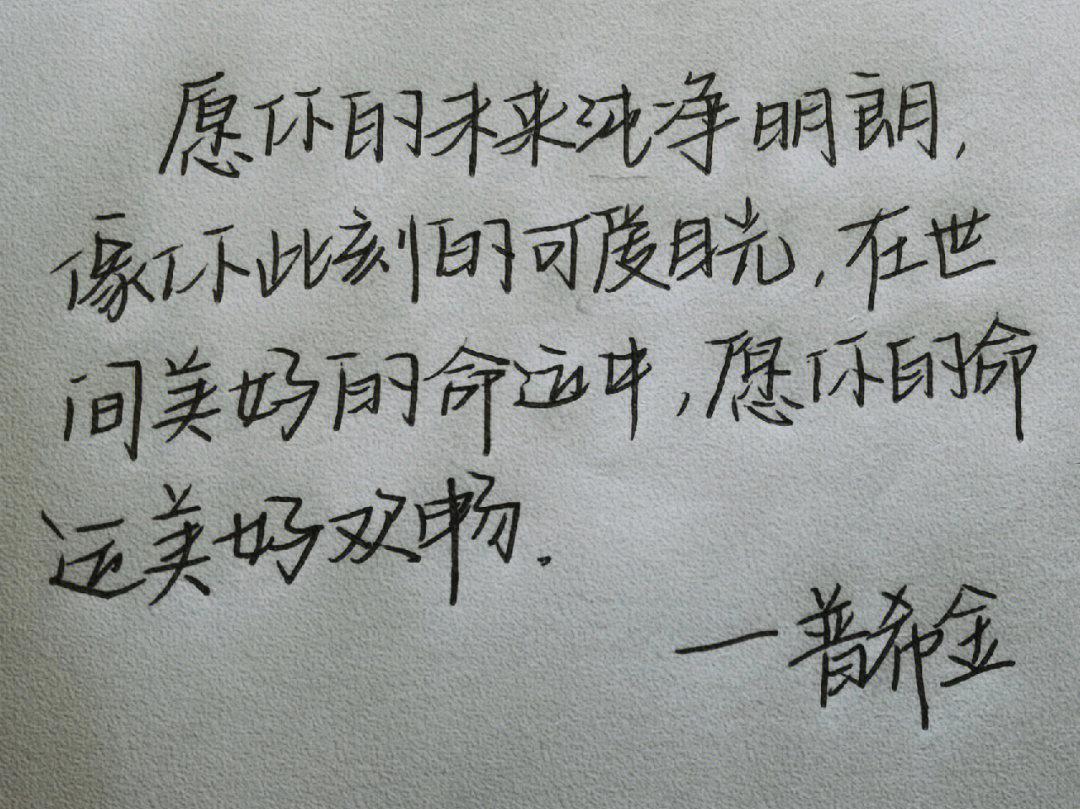 愿你的未来纯净明朗,
像你此刻的可爱目光,在世
间美好的命运中,愿你的命
运美好双畅.
—普希金